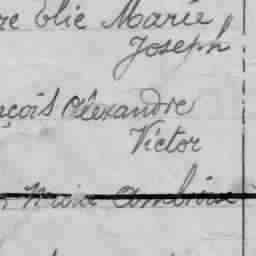 re Elie Marie
Joseph
nçois Alexandre
Victor
Marie Ambroise